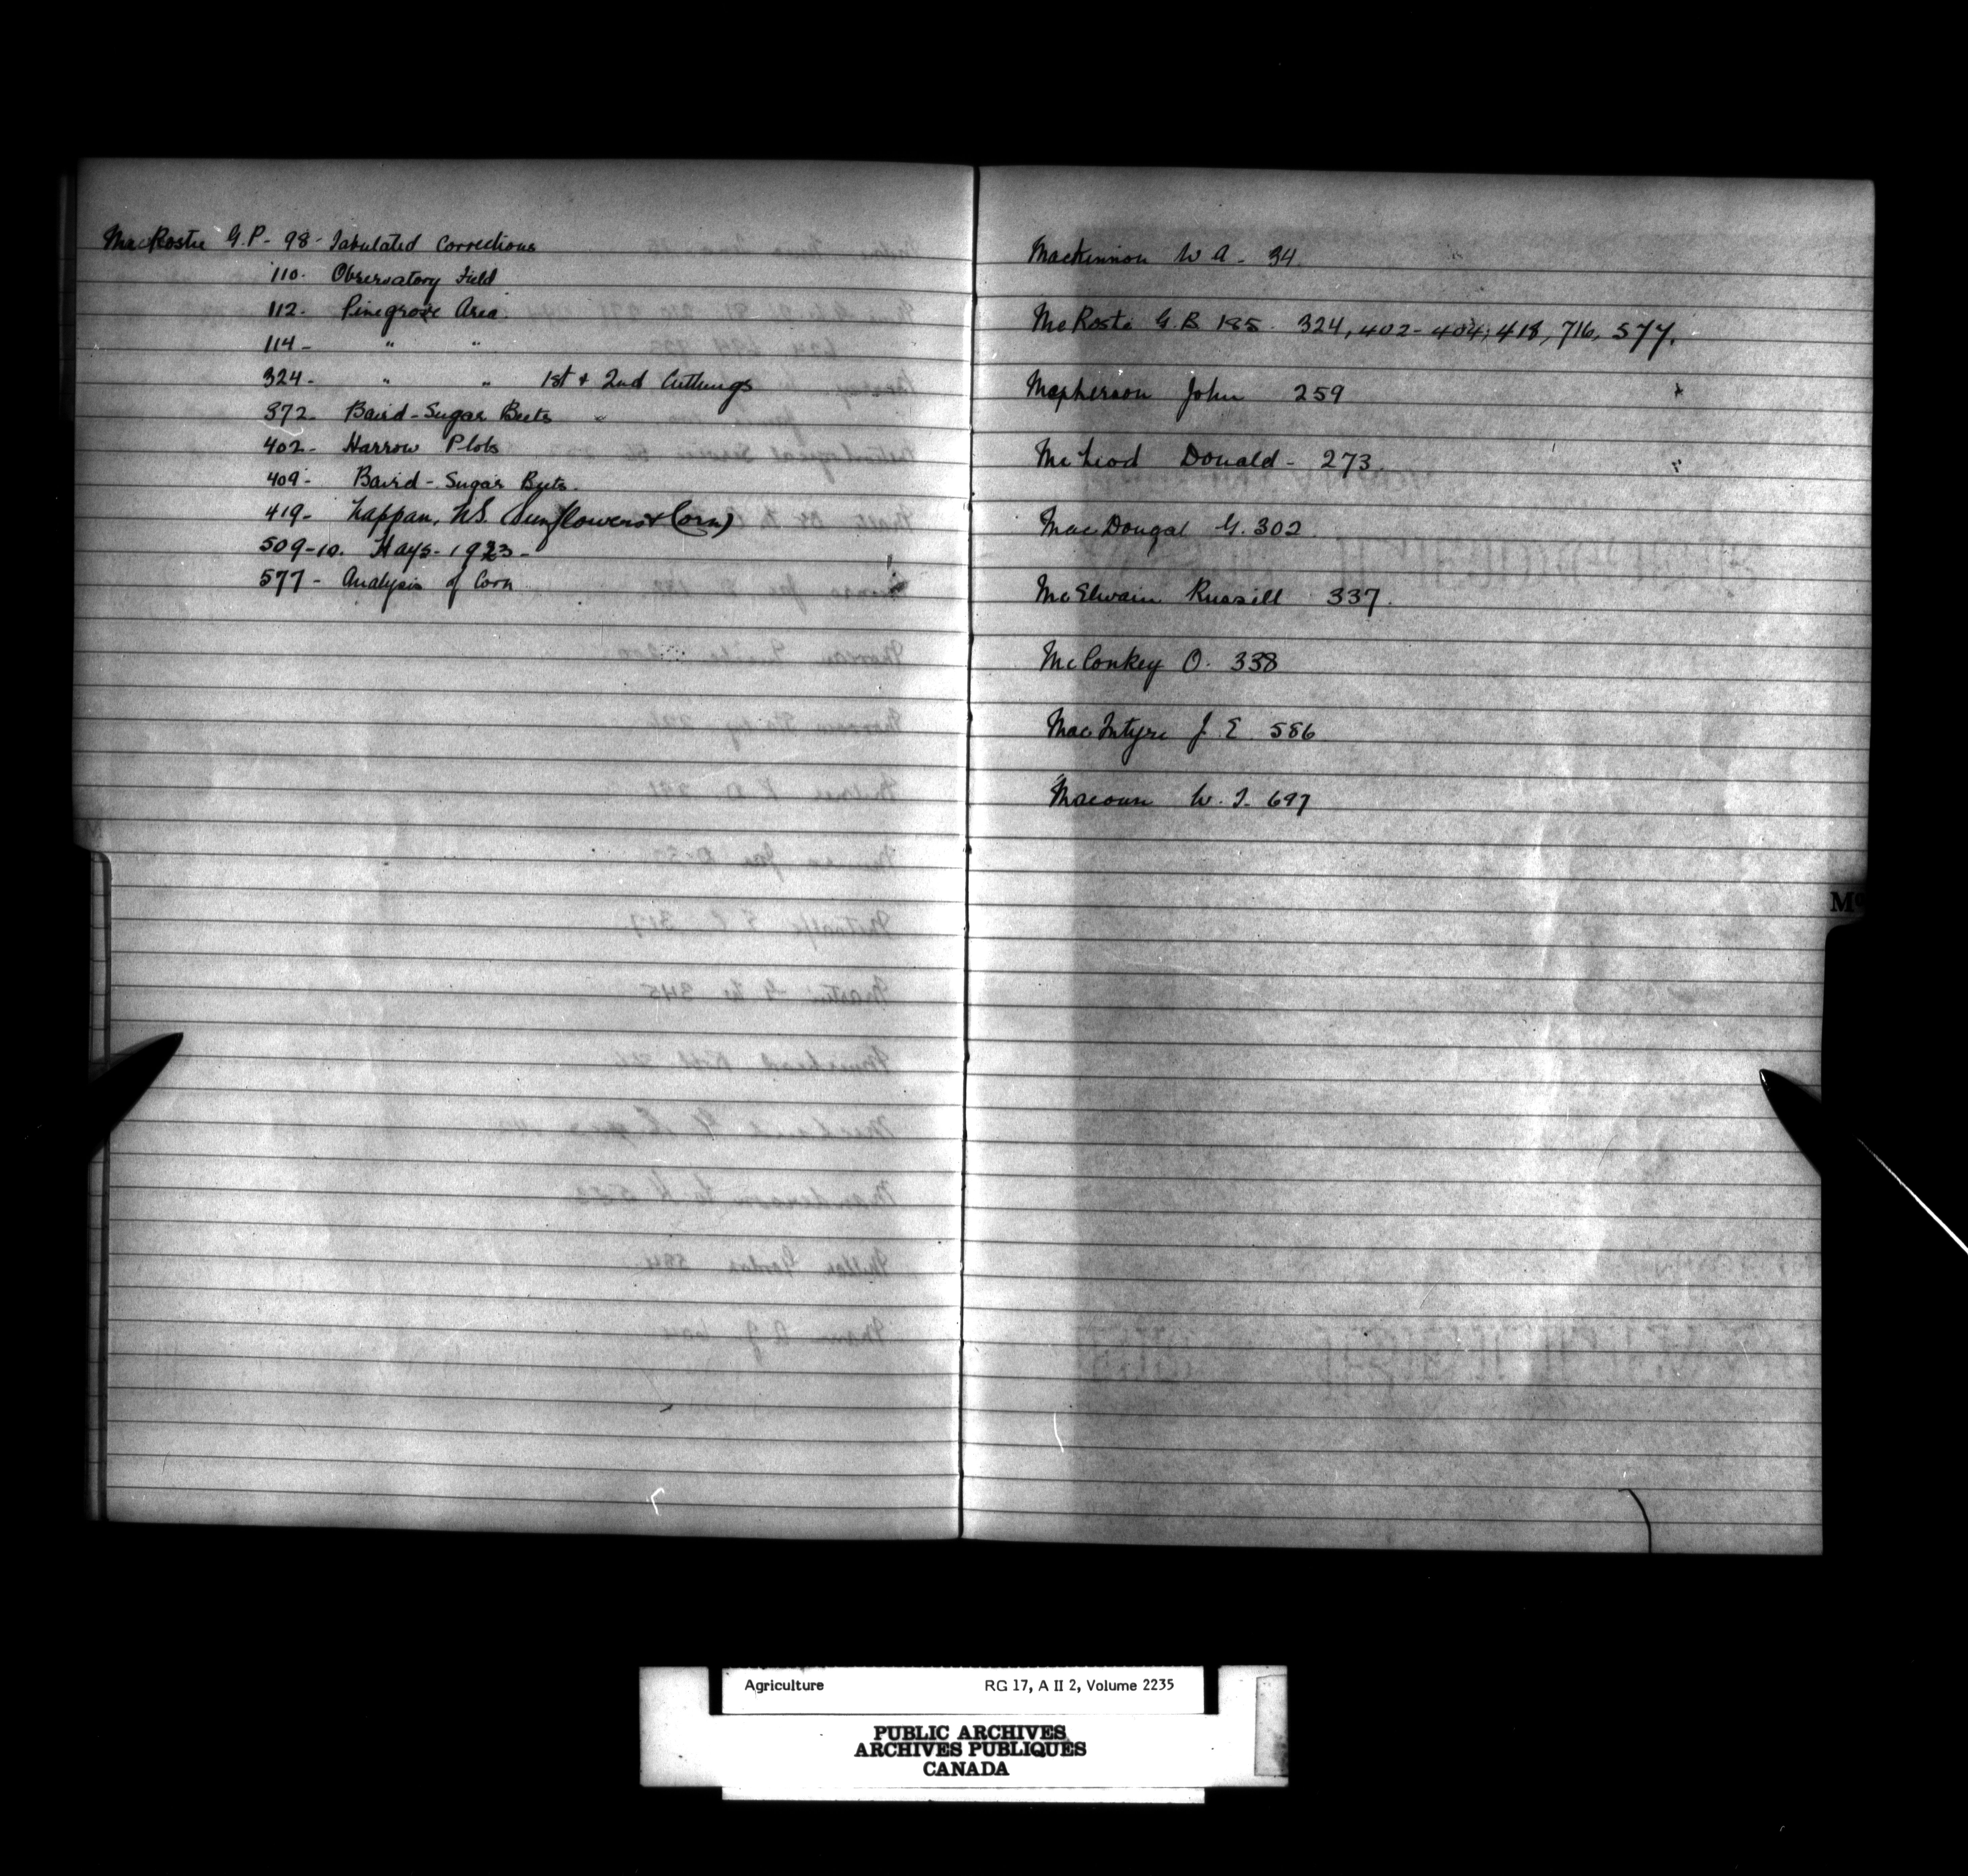 MacRostie G.P- 98- Tabulated Corrections
110. Observatory Field
112. Pinegrove Area
114- " "
324- " " 1st & 2nd Cuttings
372- Baird-Sugar Beets
402- Harrow Plots
409- Baird-Sugar Beets.
419- Nappan, N.S. (Sunflowers & Corn)
509-10. Hays-1923-
577- Analysis of Corn
Mackinnon W A- 34
McRostie G.B. 185. 324, 402-404, 418, 716, 577.
Macpherson John 259
McLeod Donald- 273
MacDougal G. 302
McElwain Russell 337.
McConkey O. 338
MacIntyre J. E. 586
Macoun W. T. 697
Mc
Agriculture RG 17, A II 2, Volume 2235
PUBLIC ARCHIVES
ARCHIVES PUBLIQUES
CANADA